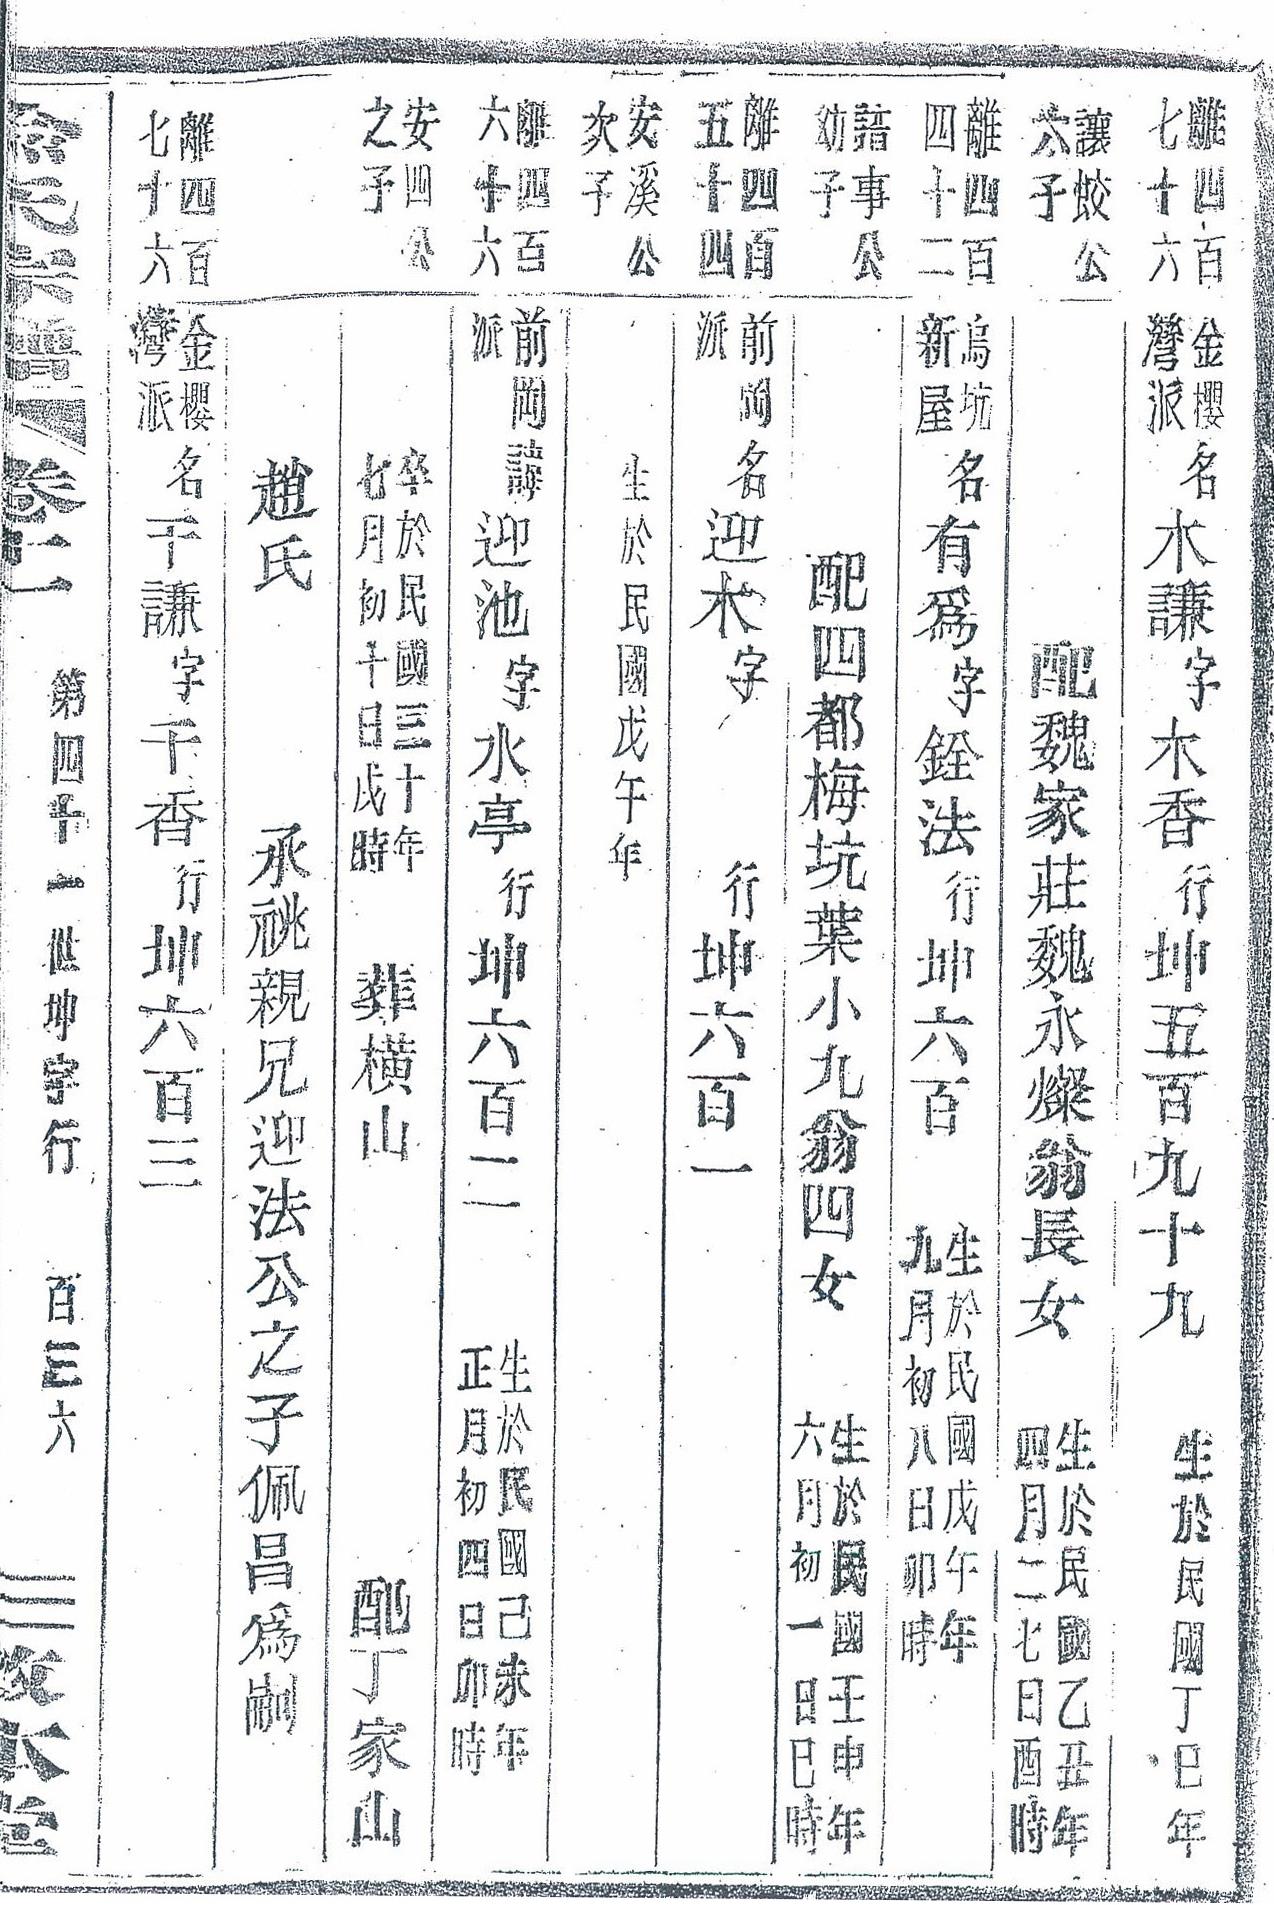 離四百
七十六
金櫻
灣派
名木謙字木香行坤五百九十九
生於民國丁巳年
讓蛟公
六子
配魏家莊魏永燦翁長女
生於民國乙丑年
四月二七日酉時
離四百
四十二
烏坑
新屋
名有爲字銓法行坤六百
生於民國戊午年
九月初八日卯時
諳事公
幼子
配四都梅坑葉小九翁四女
生於民國壬申年
六月初一日巳時
離四百
五十四
前崗
派
名迎木字 行坤六百一
安溪公
次子
生於民國戊午年
離四百
六十六
前崗
派
諱迎池字水亭行坤六百二
生於民國己未年
正月初四日卯時
安四公
之子
卒於民國三十年
七月初十日戌時
葬橫山
配丁家山
趙氏
承祧親兄迎法公之子佩昌爲嗣
離四百
七十六
金櫻
灣派
名千謙字千香行坤六百三
氏宗譜 卷十一
第四十一世坤字行
百三六
三 本堂